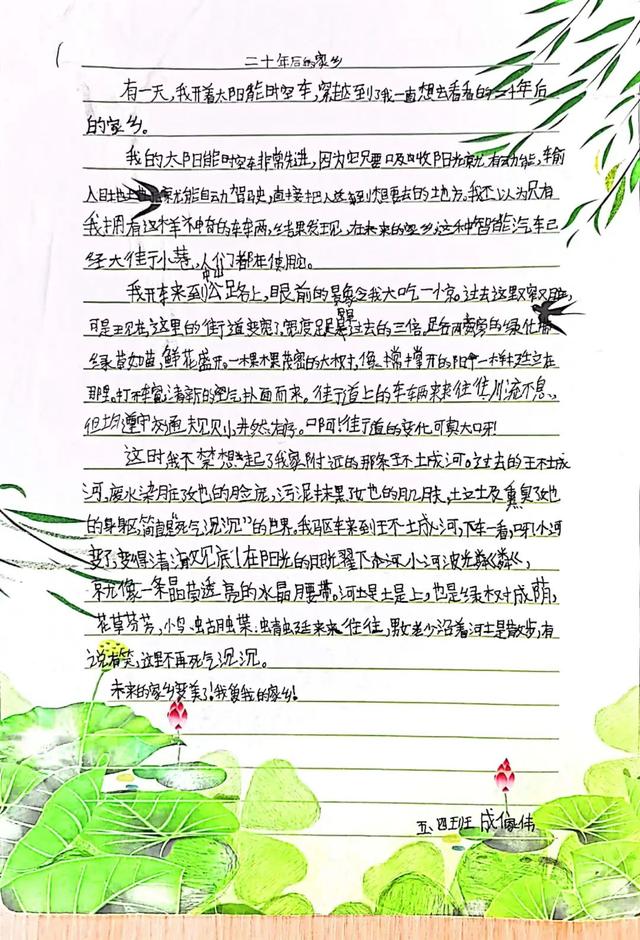 二十年后的家乡
有一天,我开着太阳能时空车,穿越到了我一直想去看看的二十年后
的家乡。
我的太阳能时空车非常先进,因为它只要吸收阳光就有动能,输
入目地就能自动驾驶,直接把人送到想要去的地方。我不以为只有
我拥有这样神奇的车车两,结果发现,在未来的家乡,这种智能汽车已
经大街小巷,人们都在使用。
我开车来到公路上,眼前的景象令我大吃一惊。过去这里又窄又
可是现在这里的街道变宽了,宽度足是过去的三倍,足旁的绿化
绿草如茵,鲜花盛开。一棵棵茂密的大树,像一撑开的阳伞一样,矗立在
那里。打开车窗,清新的空气扑面而来。街道上的车辆来来往往,川流不息、
但均遵守交通规则,井然有序。啊!街道的变化可真大呀!
这时我不禁想起了我家附近的那条环城河。过去的环城
河,废水染脏了她的脸庞,污泥抹黑了她的肌肤,垃圾熏臭了她
的身躯,简直是“死气沉沉”的世界。我驱车来到环城河,下车一看,呀!小河
变了,变得清澈见底!在阳光的照耀下,小河波光粼粼,
就像一条晶莹透亮的水晶腰带。河堤上,也是绿树成荫,
花草芬芳,小鸟、蝴蝶、蜻蜓来来往往,男女老少沿着河堤散步,有
说有笑,这里不再死气沉沉。
未来的家乡变美了!我爱我的家乡!
五、四班 成俊伟